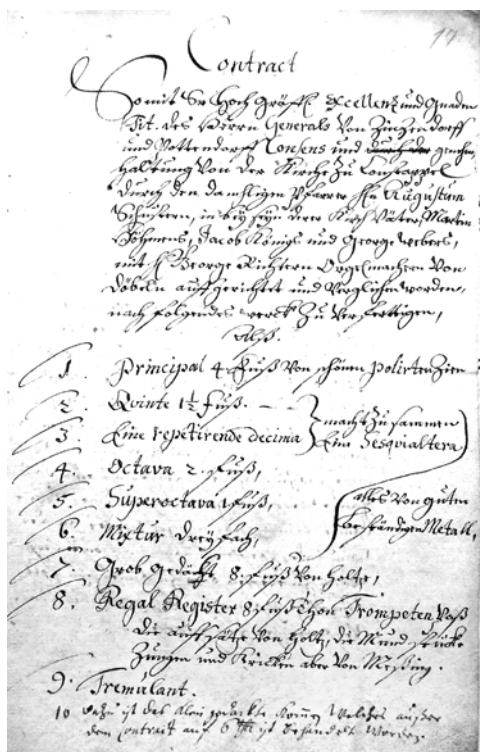 17.
Contract
So mit Sr Hoch Gräffl. Excellenz und Gnaden
Tit. des Herrn Generals Von Zinzendorff
und Pottendorff Consens und durch der genehm
haltung Von der Kirche zu Constappel
durch den damaligen Pfarrer Hn Augustum
Schustern, in beyseyn derer Kirch Väter, Martin
Böhmens, Jacob Königs und George Webers,
mit H George Richtern Orgelmachern Von
Döbeln auffgerichtet und Verglichen worden,
nach folgendes werck Zu Verfertigen,
Alß.
1. Principal 4. Fuß Von schönen polirten Zien
2. Qvinte 1½ Fuß. — macht Zusammen
3. Eine repetirende decima Eine Sesqvialtera
4. Octava 2. Fuß,
5. Superoctava 1 Fuß, alles Von guten
6. Mixtur dreyfach, beständigen Metall,
7. Grob Gedackt 8. Fuß Von holtze,
8. Regal Register 8 Fuß Thon Trompeten Baß
die auffsätze Von holtz, die Mundstücke
Zungen und Kricken aber Von Meßing.
9. Tremulant.
10 dazu ist das klein gedackte Welches außer
dem contract auf 6 thl ist behandelt Worden.